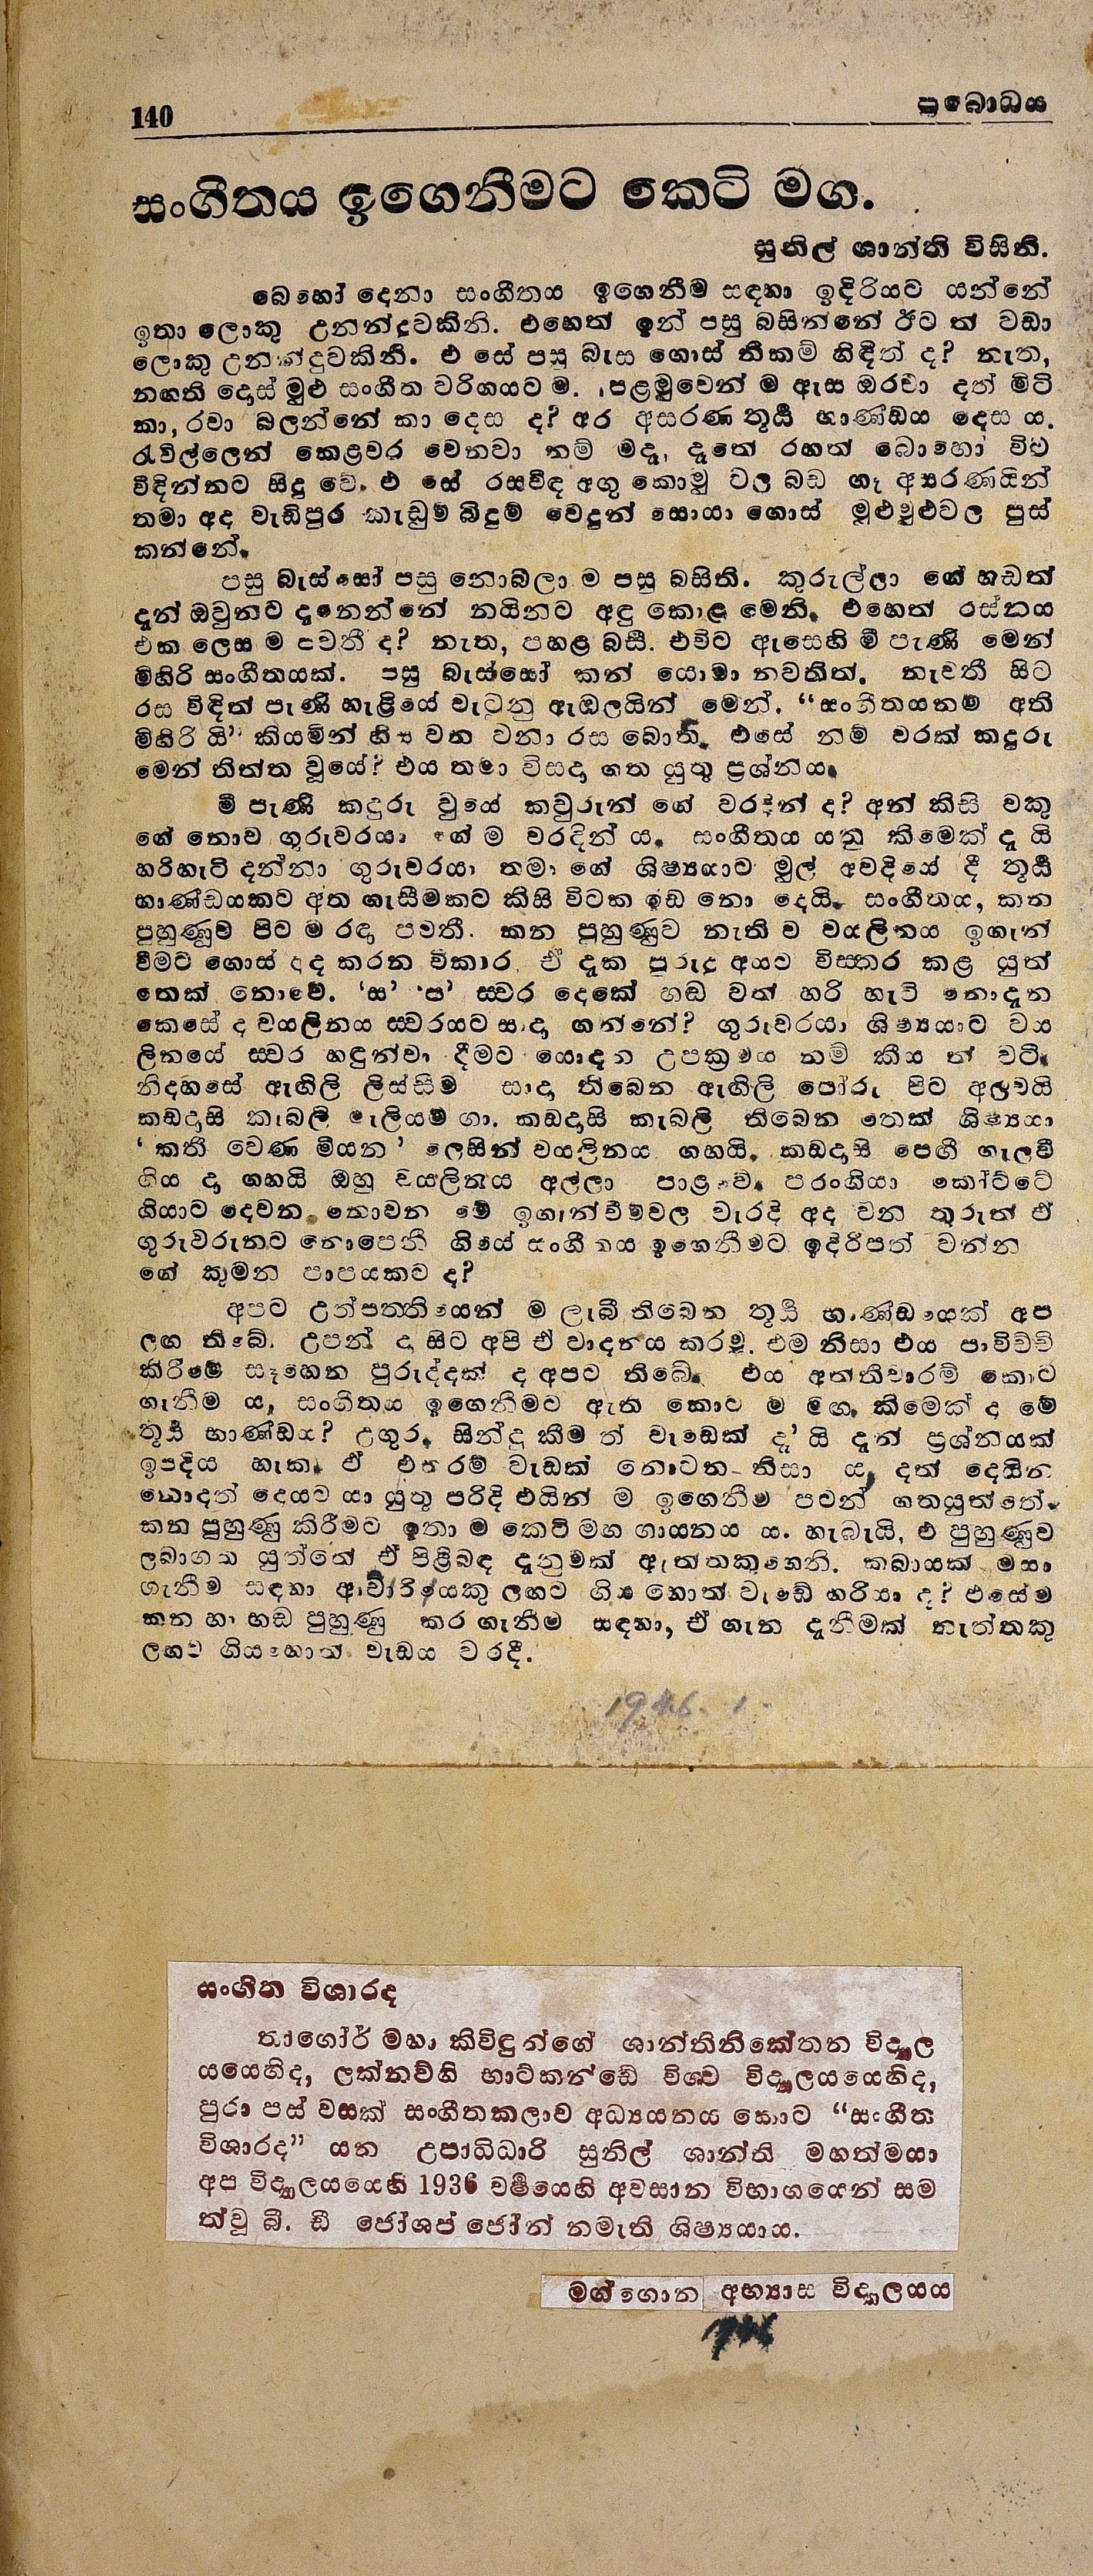 140
ප්‍රබොධය
සංගීතය ඉගෙනීමට කෙටි මග.
සුනිල් ශාන්ති විසිනි.
බොහෝ දෙනා සංගීතය ඉගෙනීම සඳහා ඉදිරියට යන්නේ
ඉතා ලොකු උනන්දුවකිනි. එහෙත් ඉන් පසු බසින්නේ ඊට ත් වඩා
ලොකු උනන්දුවකිනි. එ සේ පසු බැස ගොස් නිකම් හිඳිත් ද? නැත,
නගති දොස් මුළු සංගීත වර්ගයට ම. පළමුවෙන් ම ඇස ඔරවා දත් මිටි
කා, රවා බලන්නේ කා දෙස ද? අර අසරණ තූර්‍ය භාණ්ඩය දෙස ය.
රැවිල්ලෙන් කෙළවර වෙතවා නම් මදෑ, දෑතේ රහත් බොහෝ විට
විඳින්නට සිදු වේ. එ සේ රසවිඳ අගු කොමු වල බඩ ගෑ අසරණයින්
තමා අද වැඩිපුර කැඩුම් බිඳුම් වෙදුන් සොයා ගොස් මුළුමුළුවල පුස්
කන්නේ.
පසු බැස්සෝ පසු නොබලා ම පසු බසිති. කුරුල්ලා ගේ හඩත්
දැන් ඔවුනට දැනෙන්නේ නයිනට අඳු කොළ මෙනි. එහෙත් රස්නය
එක ලෙස ම පවතී ද? නැත, පහළ බසී. එවිට ඇසෙහි මී පැණි මෙන්
මිහිරි සංගීතයක්. පසු බැස්සෝ කන් යොමා නවතිත්. නැවතී සිට
රස විඳිත් පැණි හැළියේ වැටුනු ඇඹලයින් මෙන්. “සංගීතයනම් අති
මිහිරි යි” කියමින් හිස වන වනා රස බොති. එසේ නම් වරක් කදුරු
මෙන් තිත්ත වූයේ? එය තමා විසදා ගත යුතු ප්‍රශ්නය.
මී පැණි කදුරු වූයේ කවුරුන් ගේ වරදින් ද? අන් කිසි වකු
ගේ නොව ගුරුවරයා ගේ ම වරදින් ය. සංගීතය යනු කිමෙක් දැ යි
හරිහැටි දන්නා ගුරුවරයා තමා ගේ ශිෂ්‍යයාට මුල් අවදියේ දී තූර්‍ය
භාණ්ඩයකට අත ගැසීමකට කිසි විටක ඉඩ නො දෙයි. සංගීතය, කන
පුහුණුව පිට ම රඳා පවතී. කන පුහුණුව නැති ව වයලිනය ඉගැන්
වීමට ගොස් අද කරන විකාර, ඒ දැක පුරුදු අයට විස්තර කළ යුත්
තෙක් නොවේ. ‘ස’ ‘ප’ ස්වර දෙකේ හඬ වත් හරි හැටි නොදැන
කෙසේ ද වයලිනය ස්වරයට සාදා ගන්නේ? ගුරුවරයා ශිෂ්‍යයාට වය
ලිනයේ ස්වර හඳුන්වා දීමට යොදන උපක්‍රමය නම් කීය ත් වටී.
නිදහසේ ඇඟිලි ලිස්සීම සාදා තිබෙන ඇඟිලි පෝරු පිට අලවයි
කඩදාසි කෑබලි මැලියම් ගා. කඩදාසි කැබලි තිබෙන තෙක් ශිෂ්‍යයා
‘ කනී වෙණ මීයන ’ ලෙසින් වයලිනය ගහයි. කඩදාසි පෙගී ගැලවී
ගිය දා ගහයි ඔහු වයලිනය අල්ලා පාළුවෙ. පරංගියා කෝට්ටේ
ගියාට දෙවන නොවන මේ ඉගැන්වීම්වල වැරදි අද වන තුරුත් ඒ
ගුරුවරුනට නොපෙනී ගියේ සංගීතය ඉගෙනීමට ඉදිරිපත් වන්න
ගේ කුමන පාපයකට ද?
අපට උත්පත්තියෙන් ම ලැබී තිබෙන තූර්‍ය භාණ්ඩයෙක් අප
ලඟ තිබේ. උපන් දා සිට අපි ඒ වාදනය කරමු. එම නිසා එය පාවිච්චි
කිරීමේ සෑහෙන පුරුද්දක් ද අපට තිබේ. එය අත්තිවාරම් කොට
ගැනීම ය, සංගීතය ඉගෙනීමට ඇති කොට ම මග. කිමෙක් ද මේ
තූර්‍ය භාණ්ඩය? උගුර. සින්දු කීම ත් වැඩෙක් දැ’ යි දැන් ප්‍රශ්නයක්
ඉපදිය හැක. ඒ එතරම් වැඩක් නොවන නිසා ය, දත් දෙයින
නොදත් දෙයට යා යුතු පරිදි එයින් ම ඉගෙනීම පටන් ගතයුත්තේ.
කන පුහුණු කිරීමට ඉතා ම කෙටි මග ගායනය ය. හැබැයි, එ පුහුණුව
ලබාගත යුත්තේ ඒ පිළිබඳ දැනුමක් ඇත්තකුගෙනි. කබායක් මසා
ගැනීම සඳහා ආචාරියෙකු ලඟට ගිය හොත් වැඩේ හරියා ද? එසේම
කන හා හඬ පුහුණු කර ගැනීම සඳහා, ඒ ගැන දැනීමක් නැත්තකු
ලඟට ගියහොත් වැඩය වරදී.
1946. 1.
සංගීත විශාරද
තාගෝර් මහා කිවිඳුන්ගේ ශාන්තිනිකේතන විද්‍යාල
යයෙහිද, ලක්නව්හි භාට්කන්ඩේ විශ්ව විද්‍යාලයයෙහිද,
පුරා පස් වසක් සංගීතකලාව අධ්‍යයනය කොට “සංගීත
විශාරද” යන උපාධිධාරි සුනිල් ශාන්ති මහත්මයා
අප විද්‍යාලයයෙහි 1936 වර්‍ෂයෙහි අවසාන විභාගයෙන් සම
ත්වූ බී. ඩී ජෝශප් ජෝන් නමැති ශිෂ්‍යයාය.
මග්ගොන අභ්‍යාස විද්‍යාලයය